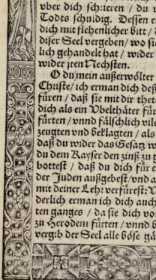 vber dich schrieren / du
Todts schuldig. Dessen e
dich mit flehenlicher bitt /
diser Seel vergeben / wo si
lich gehandelt hat / wider
wider jren Nechsten.
O du mein außerwölter
Christe / ich erman dich deß
fürten / daß sie mit dir
dich als ein Vbelthäter für
fürten / vnnd fälschlich wi
zeugten vnd beklagten / als
daß du wider das Gesatz w
du dem Kayser den zinß zu
bottest / daß du dich für e
der Juden außgebest / vnd a
mit deiner Lehr verfürest:
derlich erman ich dich auch
ten ganges / da sie dich vo
zu Herodem fürten / vnnd b
vergib der Seel alle böse gä